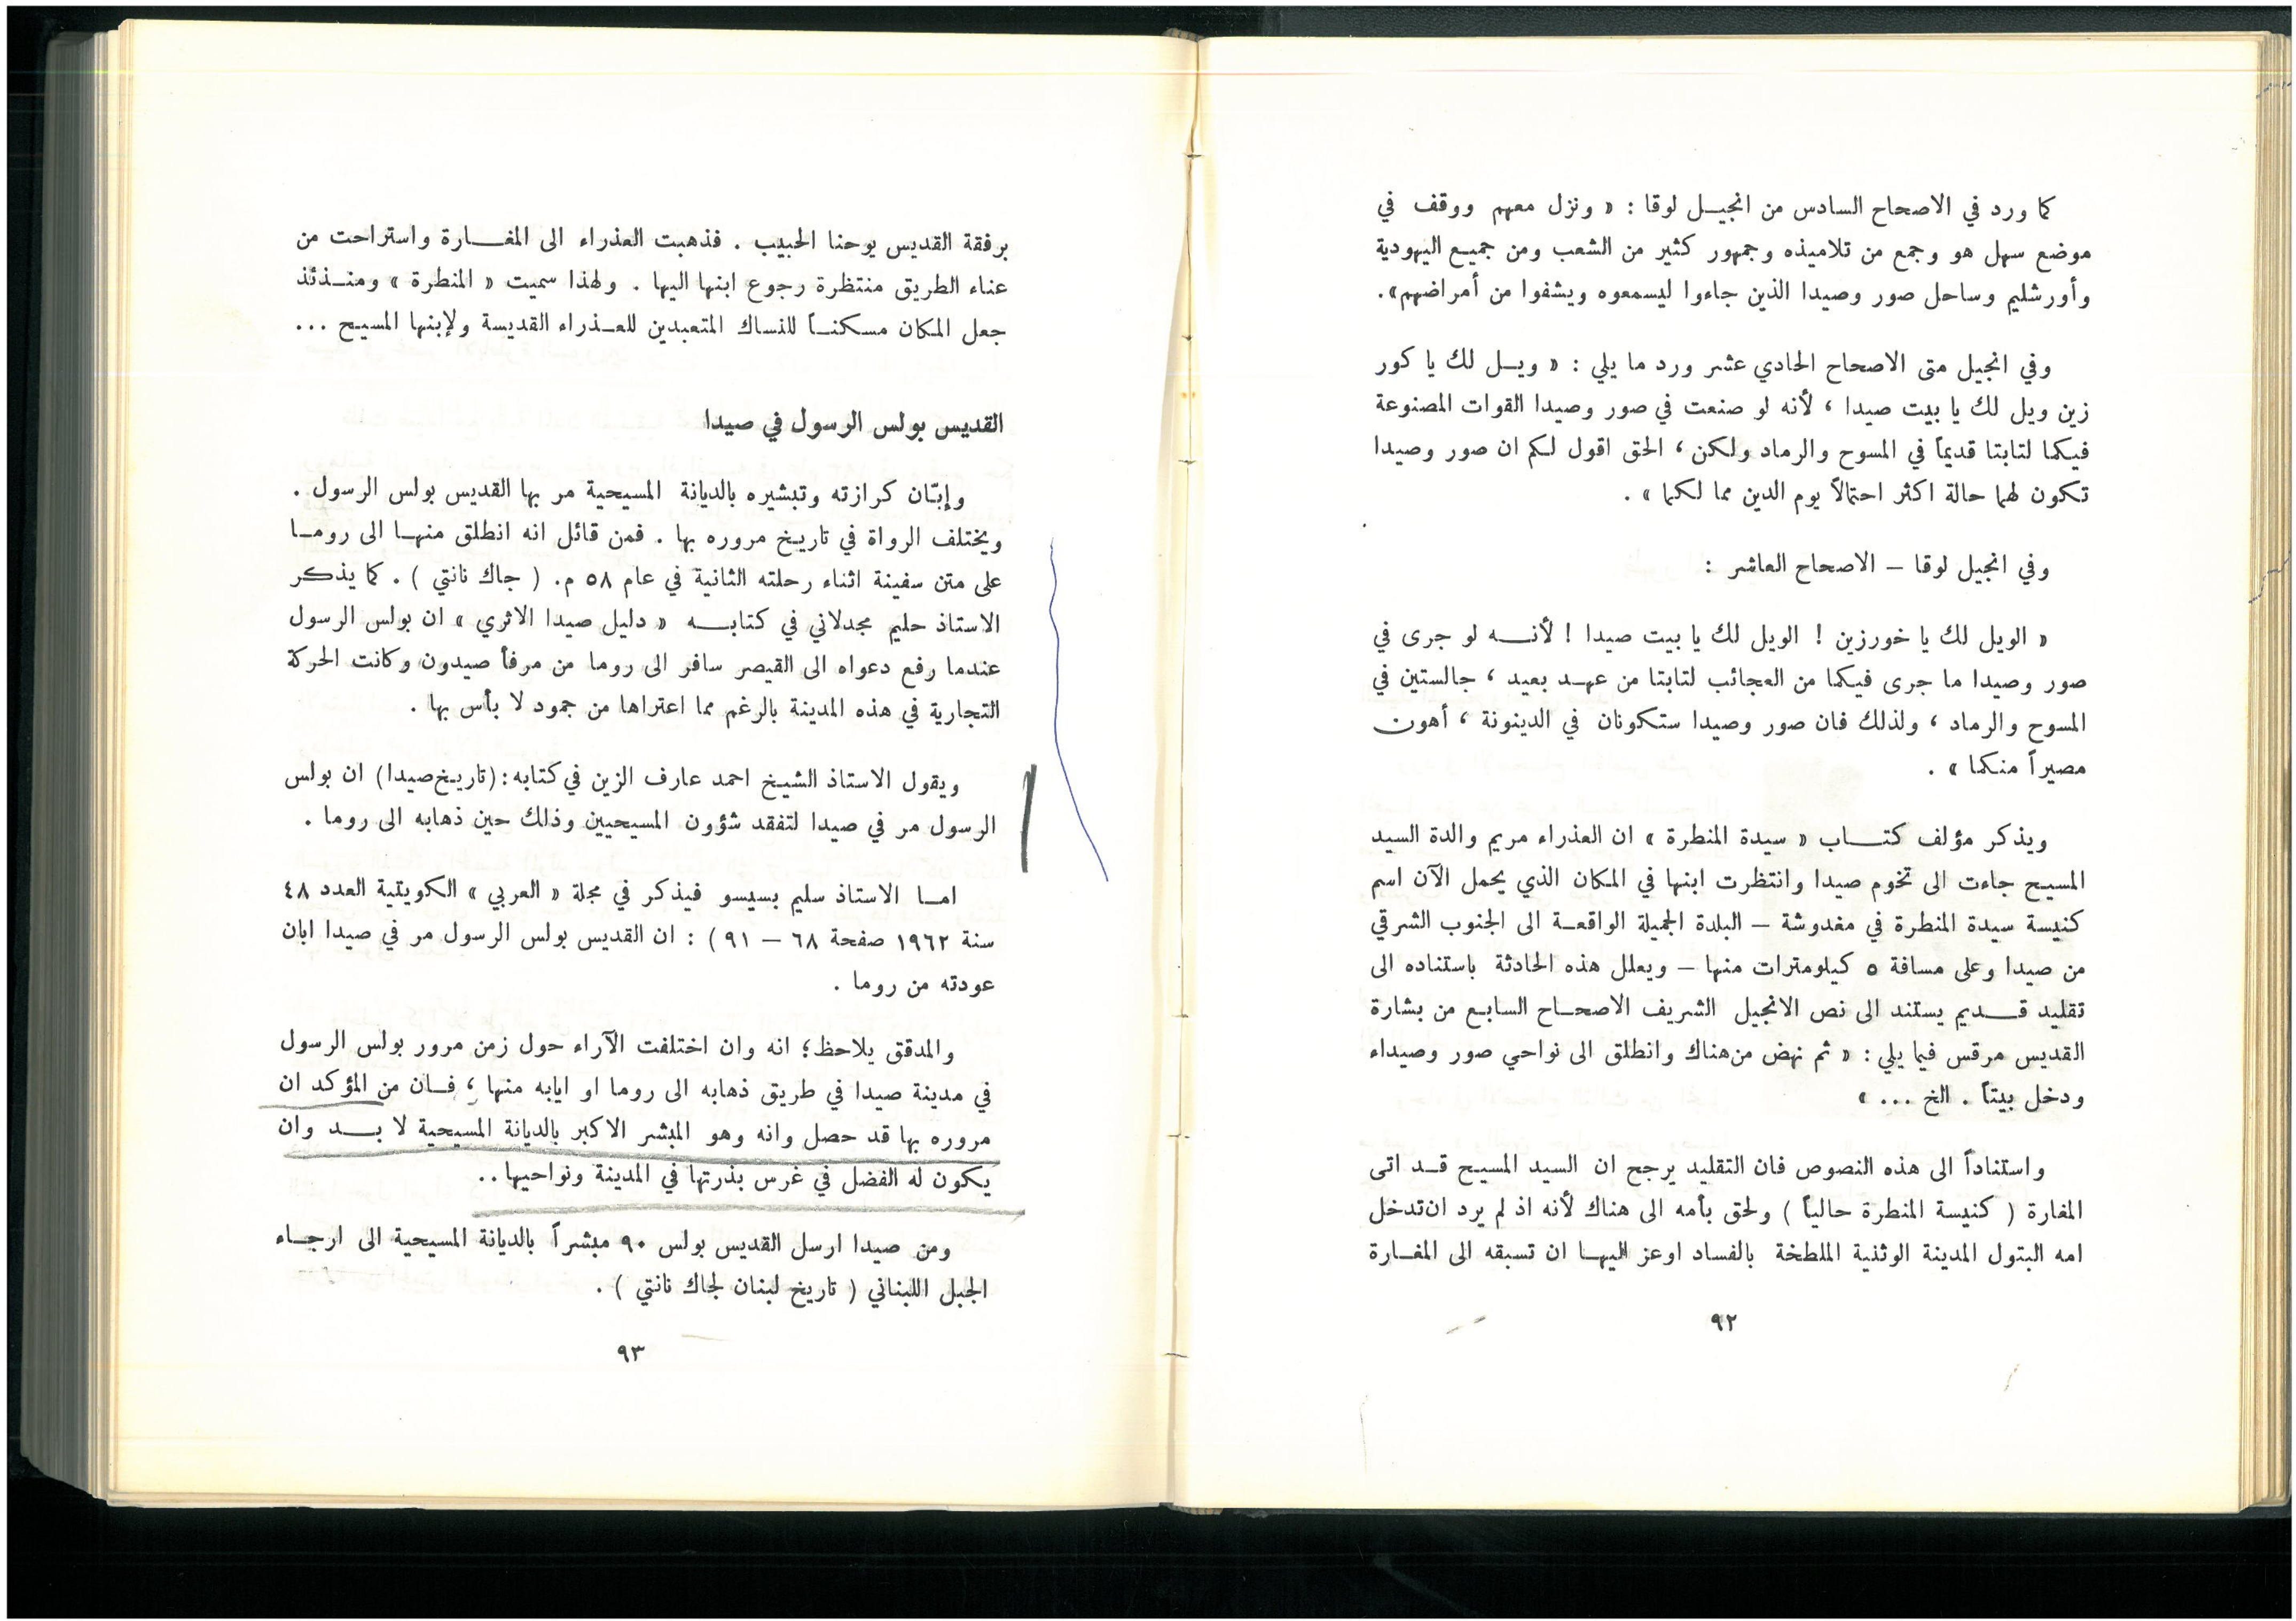 كما ورد في الاصحاح السادس من انجيل لوقا : « ونزل معهم ووقف في
موضع سهل هو وجمع من تلاميذه وجمهور كثير من الشعب ومن جميع اليهودية
وأورشليم وساحل صور وصيدا الذين جاءوا ليسمعوه ويشفوا من أمراضهم».
وفي انجيل متى الاصحاح الحادي عشر ورد ما يلي : « ويل لك يا كور
زين ويل لك يا بيت صيدا ، لأنه لو صنعت في صور وصيدا القوات المصنوعة
فيكما لتابتا قديماً في المسوح والرماد ولكن ، الحق اقول لكم ان صور وصيدا
تكون لهما حالة اكثر احتمالاً يوم الدين مما لكما » .
وفي انجيل لوقا – الاصحاح العاشر :
« الويل لك يا خورزين ! الويل لك يا بيت صيدا ! لأنه لو جرى في
صور وصيدا ما جرى فيكما من العجائب لتابتا من عهد بعيد ، جالستين في
المسوح والرماد ، ولذلك فان صور وصيدا ستكونان في الدينونة ، أهون
مصيراً منكما » .
ويذكر مؤلف كتاب « سيدة المنطرة » ان العذراء مريم والدة السيد
المسيح جاءت الى تخوم صيدا وانتظرت ابنها في المكان الذي يحمل الآن اسم
كنيسة سيدة المنطرة في مغدوشة – البلدة الجميلة الواقعة الى الجنوب الشرقي
من صيدا وعلى مسافة ٥ كيلومترات منها – ويعلل هذه الحادثة باستناده الى
تقليد قديم يستند الى نص الانجيل الشريف الاصحاح السابع من بشارة
القديس مرقس فيما يلي : « ثم نهض من هناك وانطلق الى نواحي صور وصيداء
ودخل بيتاً . الخ ... »
واستناداً الى هذه النصوص فان التقليد يرجح ان السيد المسيح قد اتى
المغارة ( كنيسة المنطرة حالياً ) ولحق بأمه الى هناك لأنه اذ لم يرد ان تدخل
امه البتول المدينة الوثنية الملطخة بالفساد اوعز اليها ان تسبقه الى المغارة
٩٢
برفقة القديس يوحنا الحبيب . فذهبت العذراء الى المغارة واستراحت من
عناء الطريق منتظرة رجوع ابنها اليها . ولهذا سميت « المنطرة » ومنذئذ
جعل المكان مسكناً للنساك المتعبدين للعذراء القديسة ولإبنها المسيح ...
القديس بولس الرسول في صيدا
وإبّان كرازته وتبشيره بالديانة المسيحية مر بها القديس بولس الرسول .
ويختلف الرواة في تاريخ مروره بها . فمن قائل انه انطلق منها الى روما
على متن سفينة اثناء رحلته الثانية في عام ٥٨ م. ( جاك نانتي ) . كما يذكر
الاستاذ حليم مجدلاني في كتابه « دليل صيدا الاثري » ان بولس الرسول
عندما رفع دعواه الى القيصر سافر الى روما من مرفأ صيدون وكانت الحركة
التجارية في هذه المدينة بالرغم مما اعتراها من جمود لا بأس بها .
ويقول الاستاذ الشيخ احمد عارف الزين في كتابه : (تاريخ صيدا) ان بولس
الرسول مر في صيدا لتفقد شؤون المسيحيين وذلك حين ذهابه الى روما .
اما الاستاذ سليم بسيسو فيذكر في مجلة « العربي » الكويتية العدد ٤٨
سنة ١٩٦٢ صفحة ٦٨ – ٩١ ) : ان القديس بولس الرسول مر في صيدا ابان
عودته من روما .
والمدقق يلاحظ؛ انه وان اختلفت الآراء حول زمن مرور بولس الرسول
في مدينة صيدا في طريق ذهابه الى روما او ايابه منها ، فان من المؤكد ان
مروره بها قد حصل وانه وهو المبشر الاكبر بالديانة المسيحية لا بد وان
يكون له الفضل في غرس بذرتها في المدينة ونواحيها ..
ومن صيدا ارسل القديس بولس ٩٠ مبشراً بالديانة المسيحية الى ارجاء
الجبل اللبناني ( تاريخ لبنان لجاك نانتي ) .
٩٣